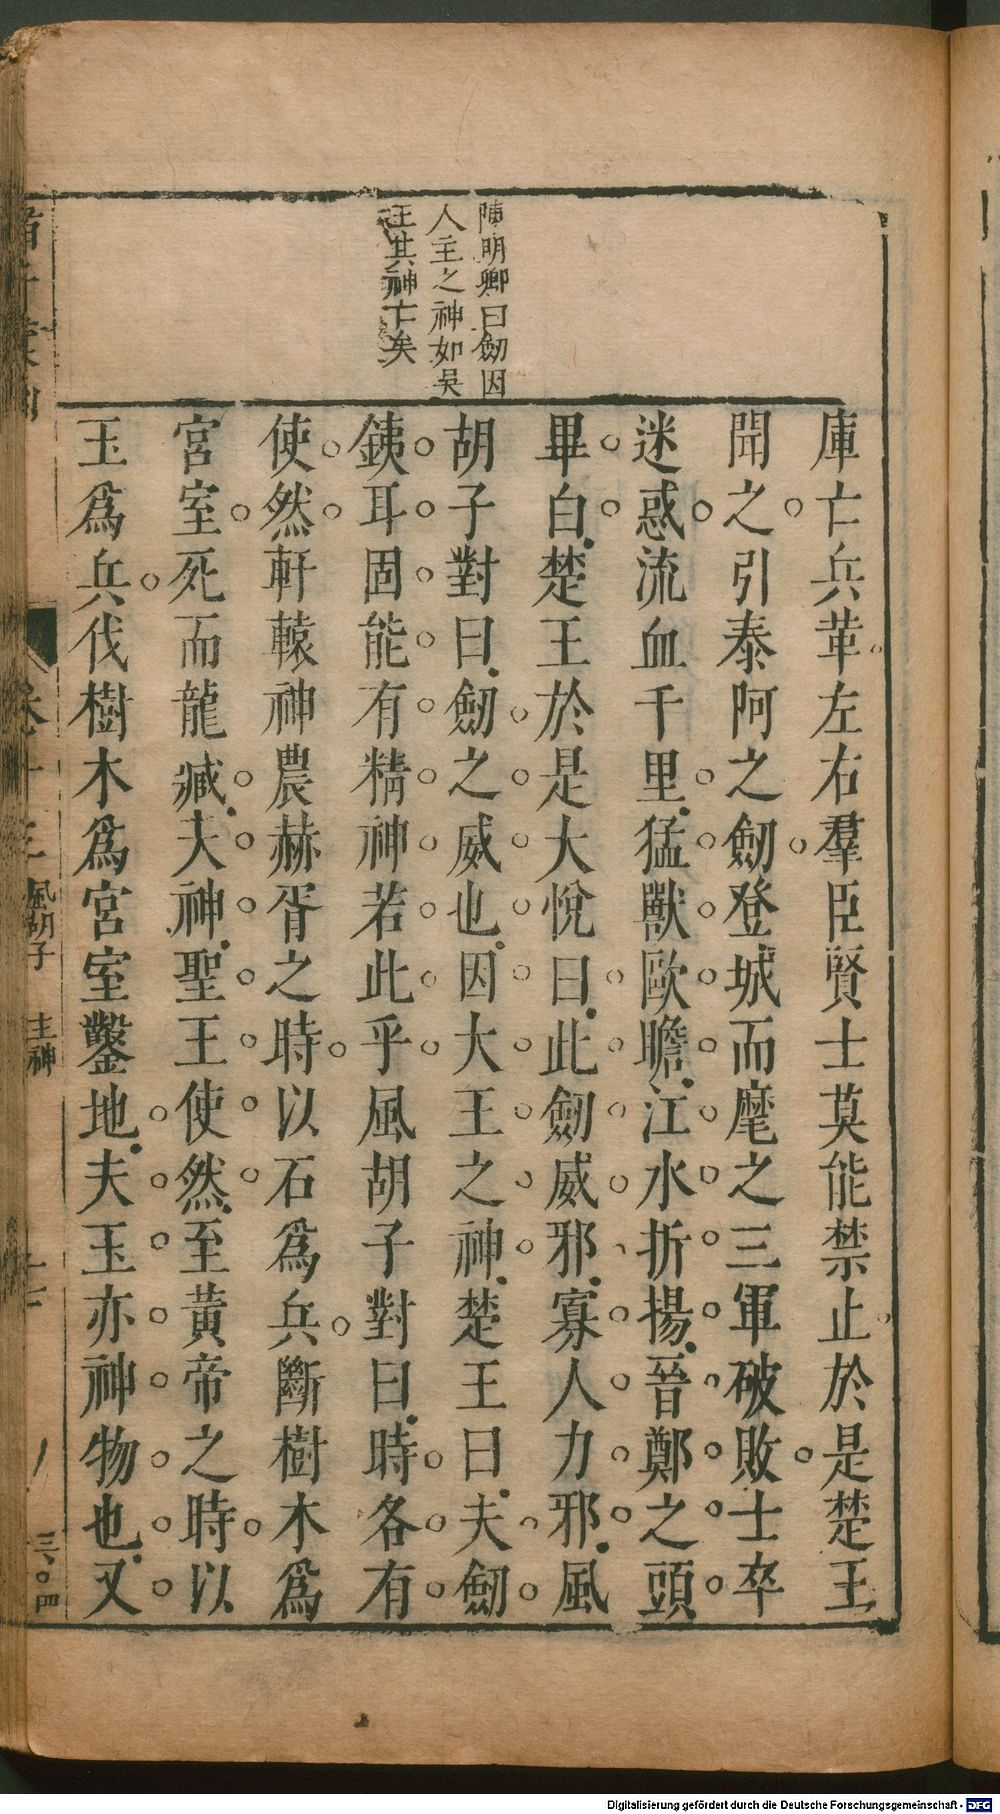 陳明卿曰劒因
人主之神如吳
王其神亡矣
庫亡兵革左右羣臣賢士莫能禁止於是楚王
聞之引泰阿之劒登城而麾之三軍破敗士卒
迷惑流血千里猛獸歐瞻江水折揚晉鄭之頭
畢白楚王於是大悅曰此劒威邪寡人力邪風
胡子對曰劒之威也因大王之神楚王曰夫劒
銕耳固能有精神若此乎風胡子對曰時各有
使然軒轅神農赫胥之時以石爲兵斷樹木爲
宮室死而龍臧夫神聖王使然至黃帝之時以
玉爲兵伐樹木爲宮室鑿地夫玉亦神物也又
風胡子 主神
三〇四
Digitalisierung gefördert durch die Deutsche Forschungsgemeinschaft - DFG